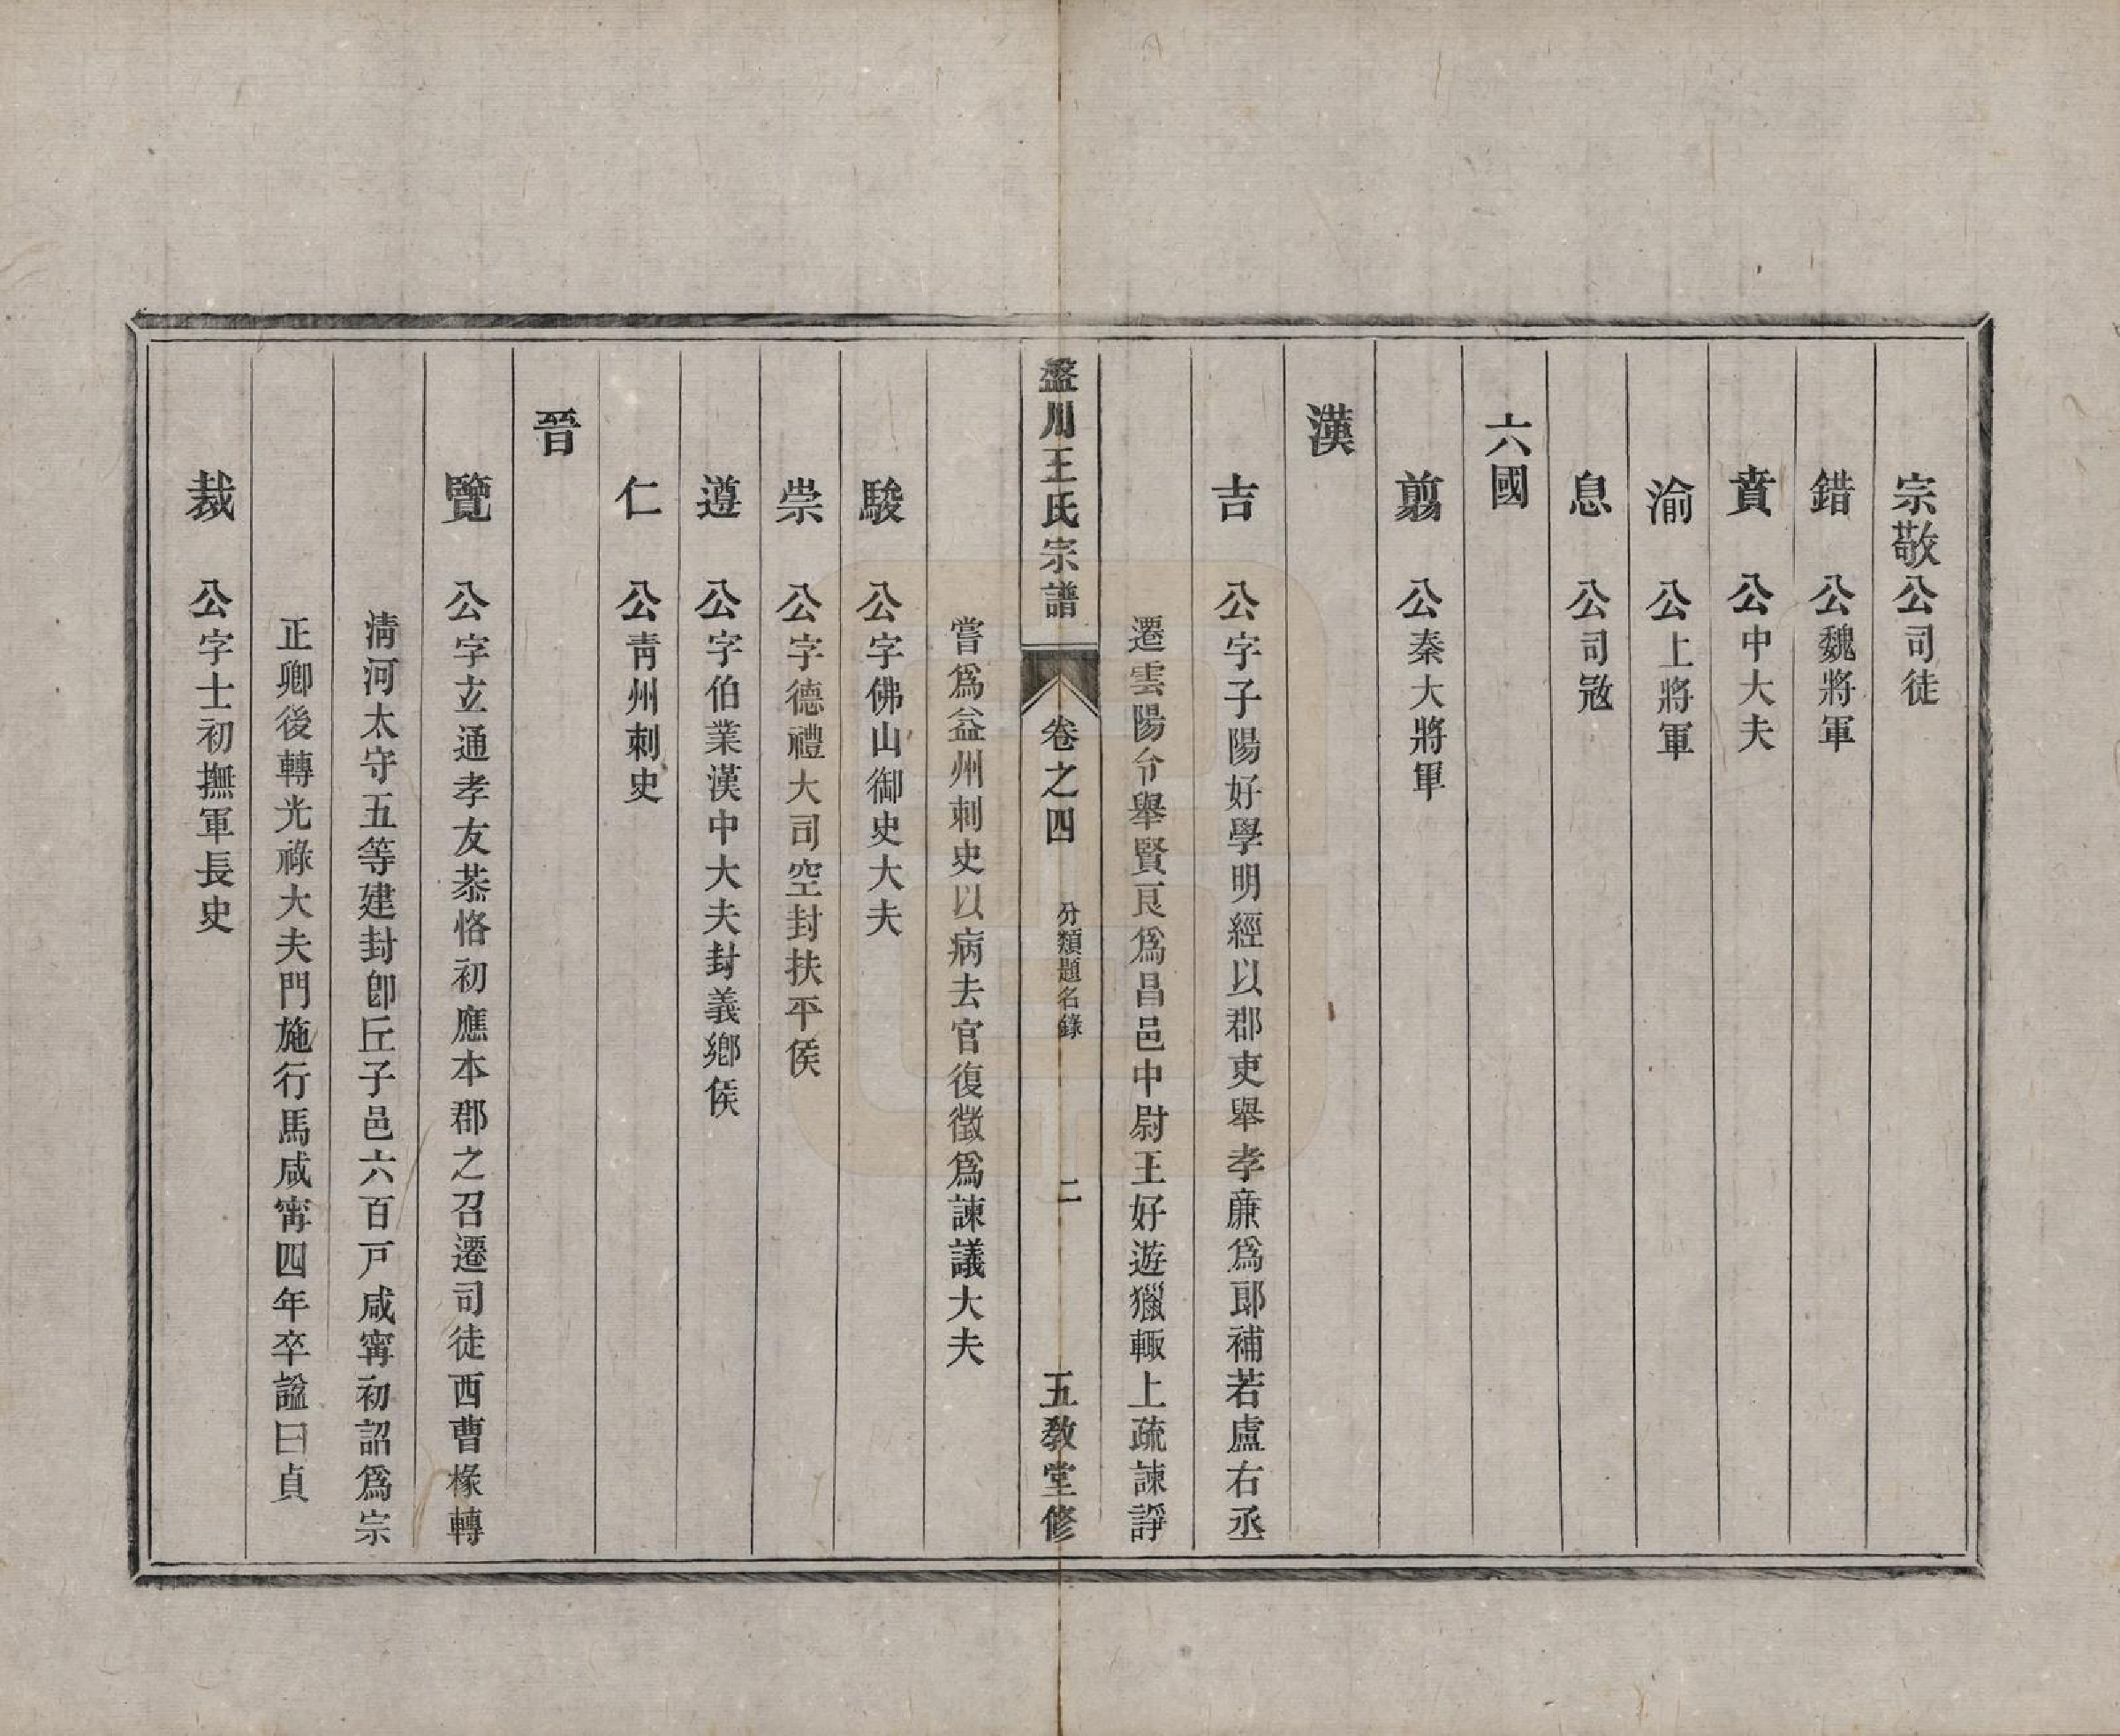 宗敬公司徒
錯　公魏將軍
賁　公中大夫
渝　公上將軍
息　公司宼
六國
翦　公秦大將軍
漢
吉　公字子陽好學明經以郡吏舉孝廉爲郎補若盧右丞
遷雲陽令舉賢良爲昌邑中尉王好遊獵輙上疏諫諍
盤川王氏宗譜　卷之四　分類題名錄　二　五教堂修
嘗爲益州刺史以病去官復徵爲諫議大夫
駿　公字佛山御史大夫
崇　公字德禮大司空封扶平侯
遵　公字伯業漢中大夫封義鄉侯
仁　公靑州刺史
晉
覽　公字立通孝友恭恪初應本郡之召遷司徒西曹椽轉
淸河太守五等建封卽丘子邑六百戸咸甯初詔爲宗
正卿後轉光祿大夫門施行馬咸甯四年卒諡曰貞
裁　公字士初撫軍長史